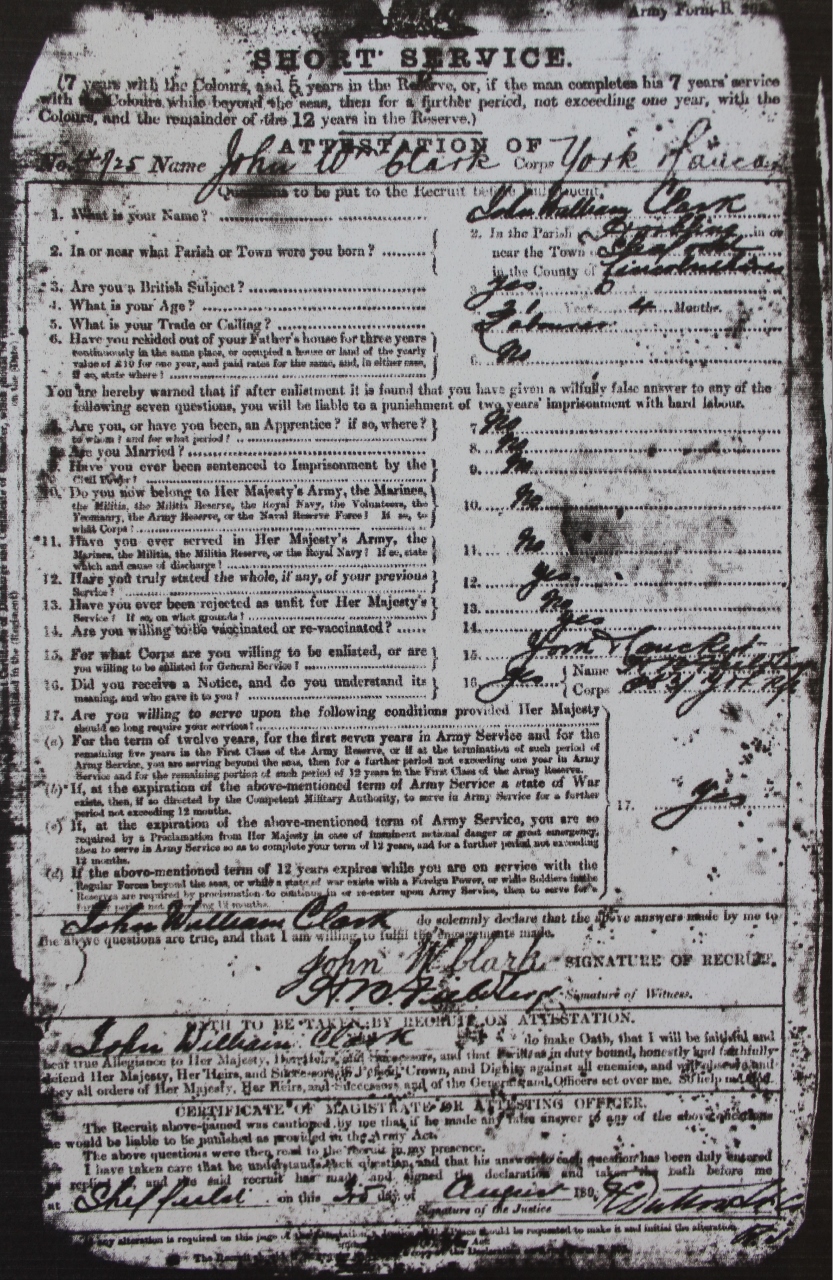 Army Form B.
SHORT SERVICE.
(7 years with the Colours, and 5 years in the Reserve, or, if the man completes his 7 years' service
with the Colours while beyond the seas, then for a further period, not exceeding one year, with the
Colours, and the remainder of the 12 years in the Reserve.)
ATTESTATION OF
No. Name John Wm Clark Corps York
Questions to be put to the Recruit before
1. What is your Name? John William Clark
2. In or near what Parish or Town were you born? 2. In the Parish in or
near the Town
in the County of Lincolnshire
3. Are you a British Subject? Yes
4. What is your Age? Years 4 Months.
5. What is your Trade or Calling? Labourer
6. Have you resided out of your Father's house for three years
continuously in the same place, or occupied a house or land of the yearly
value of £10 for one year, and paid rates for the same, and, in either case,
if so, state where? 6. No
You are hereby warned that if after enlistment it is found that you have given a wilfully false answer to any of the
following seven questions, you will be liable to a punishment of two years' imprisonment with hard labour.
Are you, or have you been, an Apprentice? if so, where? 7. No
to whom? and for what period?
Are you Married? 8. No
Have you ever been sentenced to Imprisonment by the 9. No
Civil Power?
10. Do you now belong to Her Majesty's Army, the Marines,
the Militia, the Militia Reserve, the Royal Navy, the Volunteers, the
Yeomanry, the Army Reserve, or the Naval Reserve Force? If so, to
what Corps? 10. No
*11. Have you ever served in Her Majesty's Army, the
Marines, the Militia, the Militia Reserve, or the Royal Navy? If so, state
which and cause of discharge? 11. No
12. Have you truly stated the whole, if any, of your previous
Service? 12. Yes.
13. Have you ever been rejected as unfit for Her Majesty's
Service? If so, on what grounds? 13. No
14. Are you willing to be vaccinated or re-vaccinated? 14. Yes
15. For what Corps are you willing to be enlisted, or are
you willing to be enlisted for General Service? 15. York
16. Did you receive a Notice, and do you understand its
meaning, and who gave it to you? 16. Yes Name
Corps
17. Are you willing to serve upon the following conditions provided Her Majesty
should so long require your services?
(a) For the term of twelve years, for the first seven years in Army Service and for the
remaining five years in the First Class of the Army Reserve, or if at the termination of such period of
Army Service, you are serving beyond the seas, then for a further period not exceeding one year in Army
Service and for the remaining portion of such period of 12 years in the First Class of the Army Reserve.
(b) If, at the expiration of the above-mentioned term of Army Service a state of War
exists, then, if so directed by the Competent Military Authority, to serve in Army Service for a further
period not exceeding 12 months. 17. Yes
(c) If, at the expiration of the above-mentioned term of Army Service, you are so
required by a Proclamation from Her Majesty in case of imminent national danger or great emergency,
then to serve in Army Service so as to complete your term of 12 years, and for a further period not exceeding
12 months.
(d) If the above-mentioned term of 12 years expires while you are on service with the
Regular Forces beyond the seas, or while a state of war exists with a Foreign Power, or while Soldiers in the
Reserves are required by proclamation to continue in or re-enter upon Army Service, then to serve for a
further period not exceeding 12 months.
John William Clark do solemnly declare that the above answers made by me to
the above questions are true, and that I am willing to fulfil the engagements made.
John W Clark SIGNATURE OF RECRUIT.
Signature of Witness.
OATH TO BE TAKEN BY RECRUIT ON ATTESTATION.
John William Clark do make Oath, that I will be faithful and
bear true Allegiance to Her Majesty, Her Heirs, and Successors, and that I will, as in duty bound, honestly and faithfully
defend Her Majesty, Her Heirs, and Successors, in Person, Crown, and Dignity against all enemies, and will observe and
obey all orders of Her Majesty, Her Heirs, and Successors, and of the Generals and Officers set over me. So help me God.
CERTIFICATE OF MAGISTRATE OR ATTESTING OFFICER.
The Recruit above-named was cautioned by me that if he made any false answer to any of the above questions
he would be liable to be punished as provided in the Army Act.
The above questions were then read to the recruit in my presence.
I have taken care that he understands each question, and that his answer to each question has been duly entered
as replied to, and the said recruit has made and signed the declaration and taken the oath before me
at Sheffield on this 25 day of August 189
Signature of the Justice
any alteration is required on this page of the Attestation, should be requested to make it and initial the alteration
The Recruit should